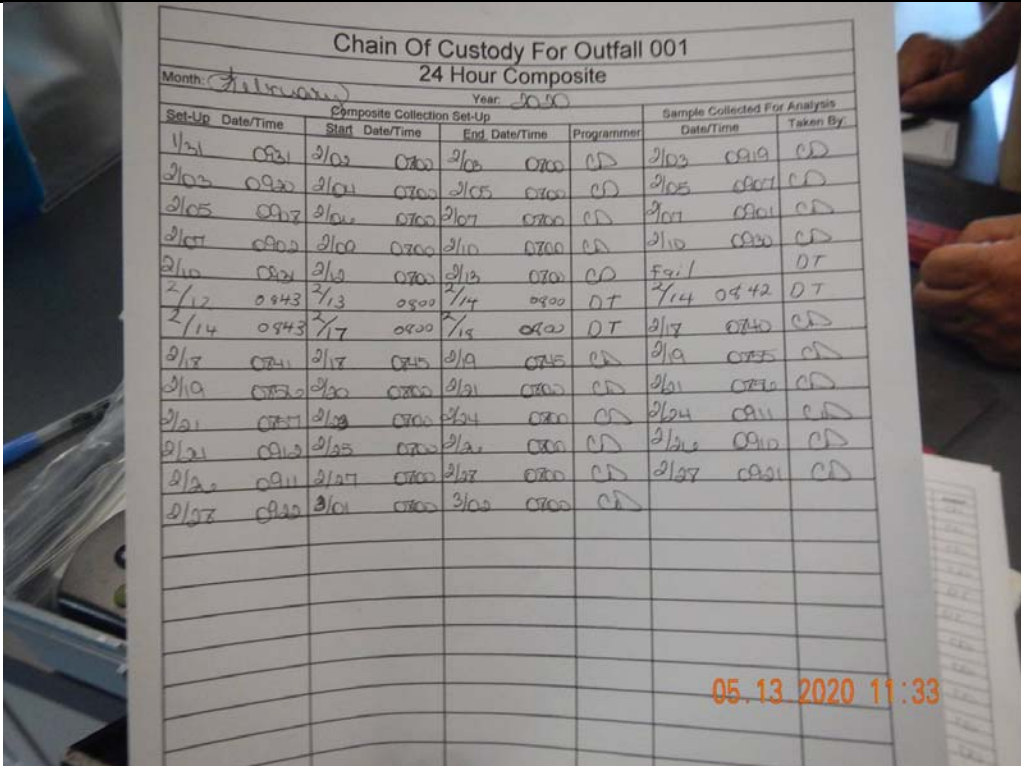 Chain Of Custody For Outfall 001
24 Hour Composite
Month: February Year: 2020
Composite Collection Set-Up Sample Collected For Analysis
Set-Up Date/Time Start Date/Time End Date/Time Programmer Date/Time Taken By:
1/31 0931 2/02 0700 2/03 0700 CD 2/03 0919 CD
2/03 0920 2/04 0700 2/05 0700 CD 2/05 0907 CD
2/05 0908 2/06 0700 2/07 0700 CD 2/07 0901 CD
2/07 0902 2/09 0700 2/10 0700 CD 2/10 0930 CD
2/10 0931 2/12 0700 2/13 0700 CD Fail DT
2/12 0843 2/13 0800 2/14 0800 DT 2/14 0842 DT
2/14 0843 2/17 0800 2/18 0800 DT 2/18 0840 CD
2/18 0841 2/18 0845 2/19 0845 CD 2/19 0855 CD
2/19 0856 2/20 2/21 CD 2/21 0856 CD
2/21 0857 2/23 0700 2/24 0700 CD 2/24 0911 CD
2/21 0912 2/25 0700 2/26 0700 CD 2/26 0910 CD
2/26 0911 2/27 0700 2/28 0700 CD 2/28 0921 CD
2/28 0922 3/01 0700 3/02 0700 CD
05.13.2020 11:33